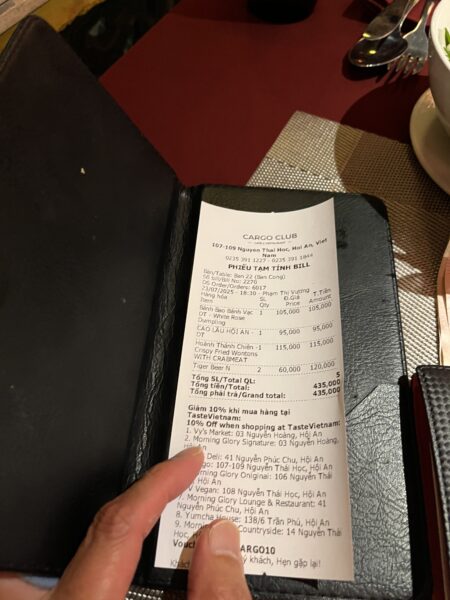 CARGO CLUB
107-109 Nguyen Thai Hoc, Hoi An, Viet
Nam
0235 391 1227 - 0235 391 1844
PHIẾU TẠM TÍNH BILL
Bàn/Table: Ban 22 (Ban Cong)
Số bill/Bill No: 2270
DS Order/Orders: 6017
21/07/2025 - 18:30 - Phạm Thị Vương
Hàng hóa SL Đ.Giá T.Tiền
Item Qty Price Amount
Bánh Bao Bánh Vạc 1 105,000 105,000
DT - White Rose
Dumpling
CAO LẦU HỘI AN - 1 95,000 95,000
DT
Hoành Thánh Chiên - 1 115,000 115,000
Crispy Fried Wontons
WITH CRABMEAT
Tiger Beer N 2 60,000 120,000
Tổng SL/Total QL: 5
Tổng tiền/Total: 435,000
Tổng phải trả/Grand total: 435,000
Giảm 10% khi mua hàng tại
TasteVietnam:
10% Off when shopping at TasteVietnam:
1. Vy's Market: 03 Nguyễn Hoàng, Hội An
2. Morning Glory Signature: 03 Nguyễn Hoàng,
Deli: 41 Nguyễn Phúc Chu, Hội An
107-109 Nguyễn Thái Học, Hội An
Morning Glory Original: 106 Nguyễn Thái
Hội An
Vegan: 108 Nguyễn Thái Học, Hội An
7. Morning Glory Lounge & Restaurant: 41
Nguyễn Phúc Chu, Hội An
8. Yumcha House: 138/6 Trần Phú, Hội An
9. Countryside: 14 Nguyễn Thái
Hội An
khách, Hẹn gặp lại!